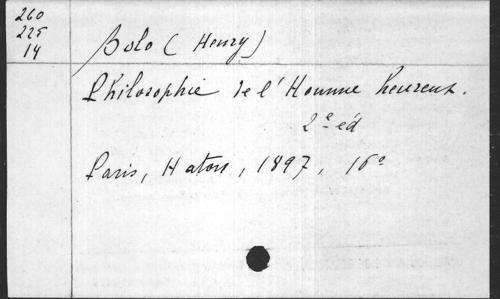 260
225
14
Bolo (Henry)
Philosophie de l'Homme heureux.
2e éd
Paris, Haton, 1897, 16°